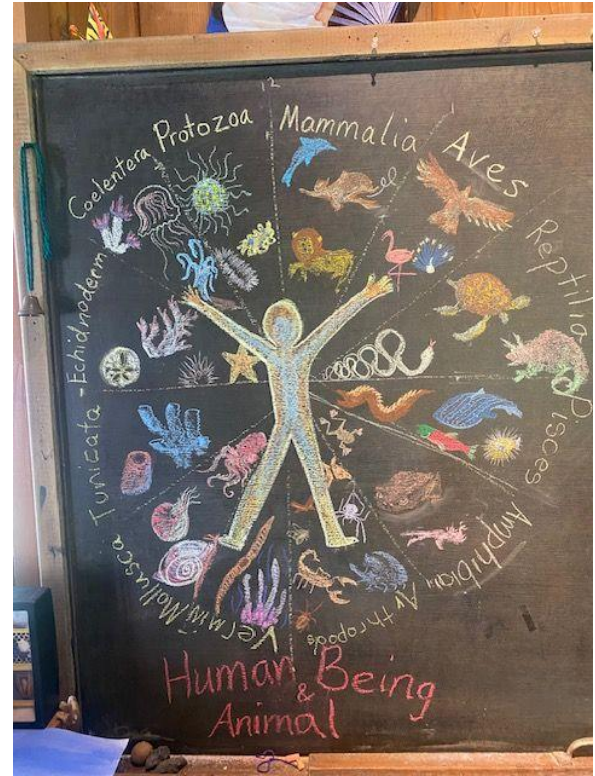 12
Protozoa
Mammalia
Aves
Reptilia
Pisces
Amphibian
Arthropods
Vermin
Mollusca
Tunicata - Echidnoderm
Coelentera
Human Being
&
Animal